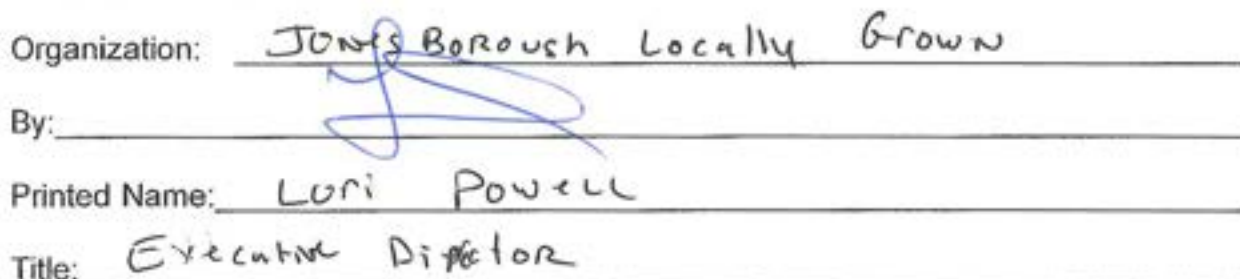 Organization: Jonesborough Locally Grown
By:
Printed Name: Lori Powell
Title: Executive Director